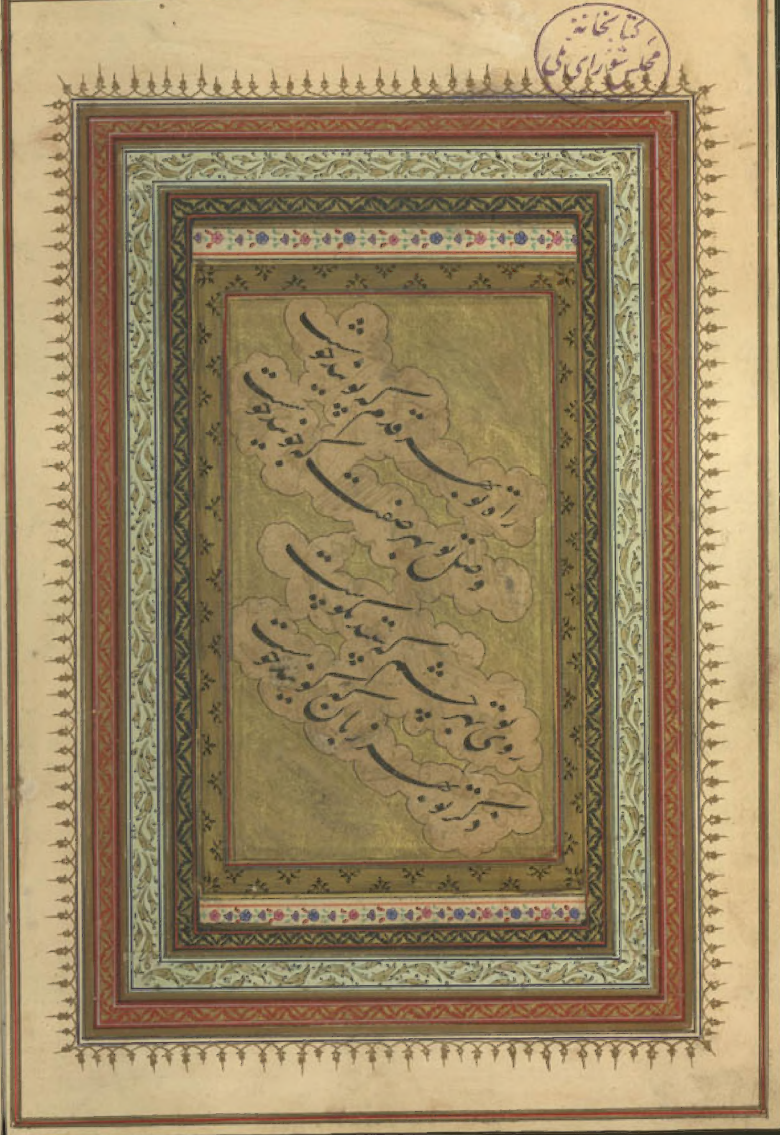 کتابخانه
مجلس شورای ملی
راه تو بهر قدم که پویند خوشست
وصل تو بهر صفت که جویند خوشست
روی تو بهر چشم که بینند نکوست
ذکر تو بهر زبان که گویند خوشست